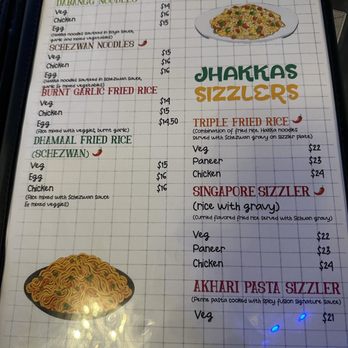 DABANGG NOODLES
Veg $14
Chicken $16
Egg $16
(Hakka noodles sauteed in soya sauce,
garlic and mixed vegetables)
SCHEZWAN NOODLES
Veg $15
Chicken $16
Egg $16
(Hakka noodles sauteed in Schezwan sauce,
garlic & mixed vegetables)
BURNT GARLIC FRIED RICE
Veg $14
Chicken $15
Egg $14.50
(Rice mixed with veggies, burnt garlic)
DHAMAAL FRIED RICE
(SCHEZWAN)
Veg $15
Egg $16
Chicken $16
(Rice mixed with Schezwan sauce
& mixed veggies)
JHAKKAS
SIZZLERS
TRIPLE FRIED RICE
(Combination of fried rice, Hakka noodles
served with Schezwan gravy on sizzler plate)
Veg $22
Paneer $23
Chicken $24
SINGAPORE SIZZLER
(rice with gravy)
(Curried flavored fried rice served with Sichuan gravy)
Veg $22
Paneer $23
Chicken $24
AKHARI PASTA SIZZLER
(Penne pasta cooked with spicy fusion signature sauce)
Veg $21